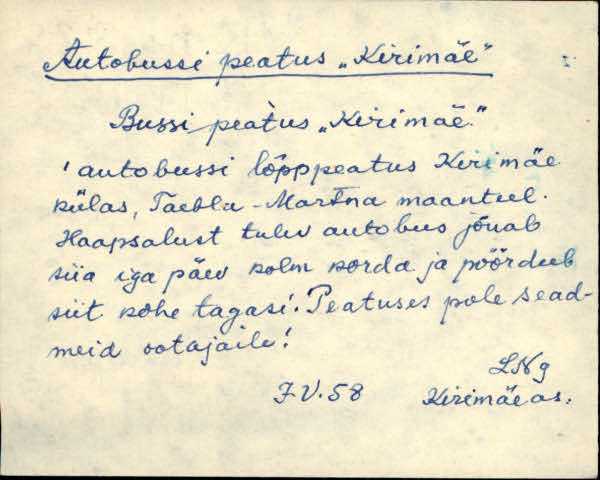 Autobussi peatus „Kirimäe"
Bussi peatus „Kirimäe"
autobussi lõpppeatus Kirimäe
külas, Taebla - Martna maanteel.
Haapsalust tulev autobus jõuab
siia iga päev kolm korda ja pöördub
siit kohe tagasi. Peatuses pole sead-
meid ootajaile!
V. 58
Kirimäe as.